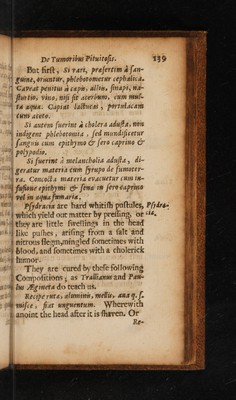 De Tumoribus Pituitosis. 139
But first, Si rari, præsertim à san-
guine, oriuntur, phlebotometur cephalica.
Capiat penitus à capu, allio, sinapi, na-
sturtio, vino, nisi sit acerbum, cum mul-
ta aqua. Capiat lactucas, portulacam
cum aceto.
Si autem fuerint à cholera adusta, non
indigent phlebotomia, sed mundificetur
sanguis cum epithymo & sero caprino &
polypodio.
Si fuerint à melancholia adusta, di-
geratur materia cum syrupo de fumoter-
ra. Concocta materia evacuetur cum in-
fusione epithymi & senæ in sero caprino
vel in aqua fumariæ.
Psydracia are hard whitish pustules,
which yield out matter by pressing, or
they are little swellings in the head
like pushes, arising from a salt and
nitrous flegm, mingled sometimes with
blood, and sometimes with a cholerick
humor.
Psydra-
cia.
They are cured by these following
Compositions; as Trallianus and Pau-
lus Ægineta do teach us.
Recipe rutæ, aluminis, mellis, ana q. s.
misce, fiat unguentum. Wherewith
anoint the head after it is shaven. Or
Re-